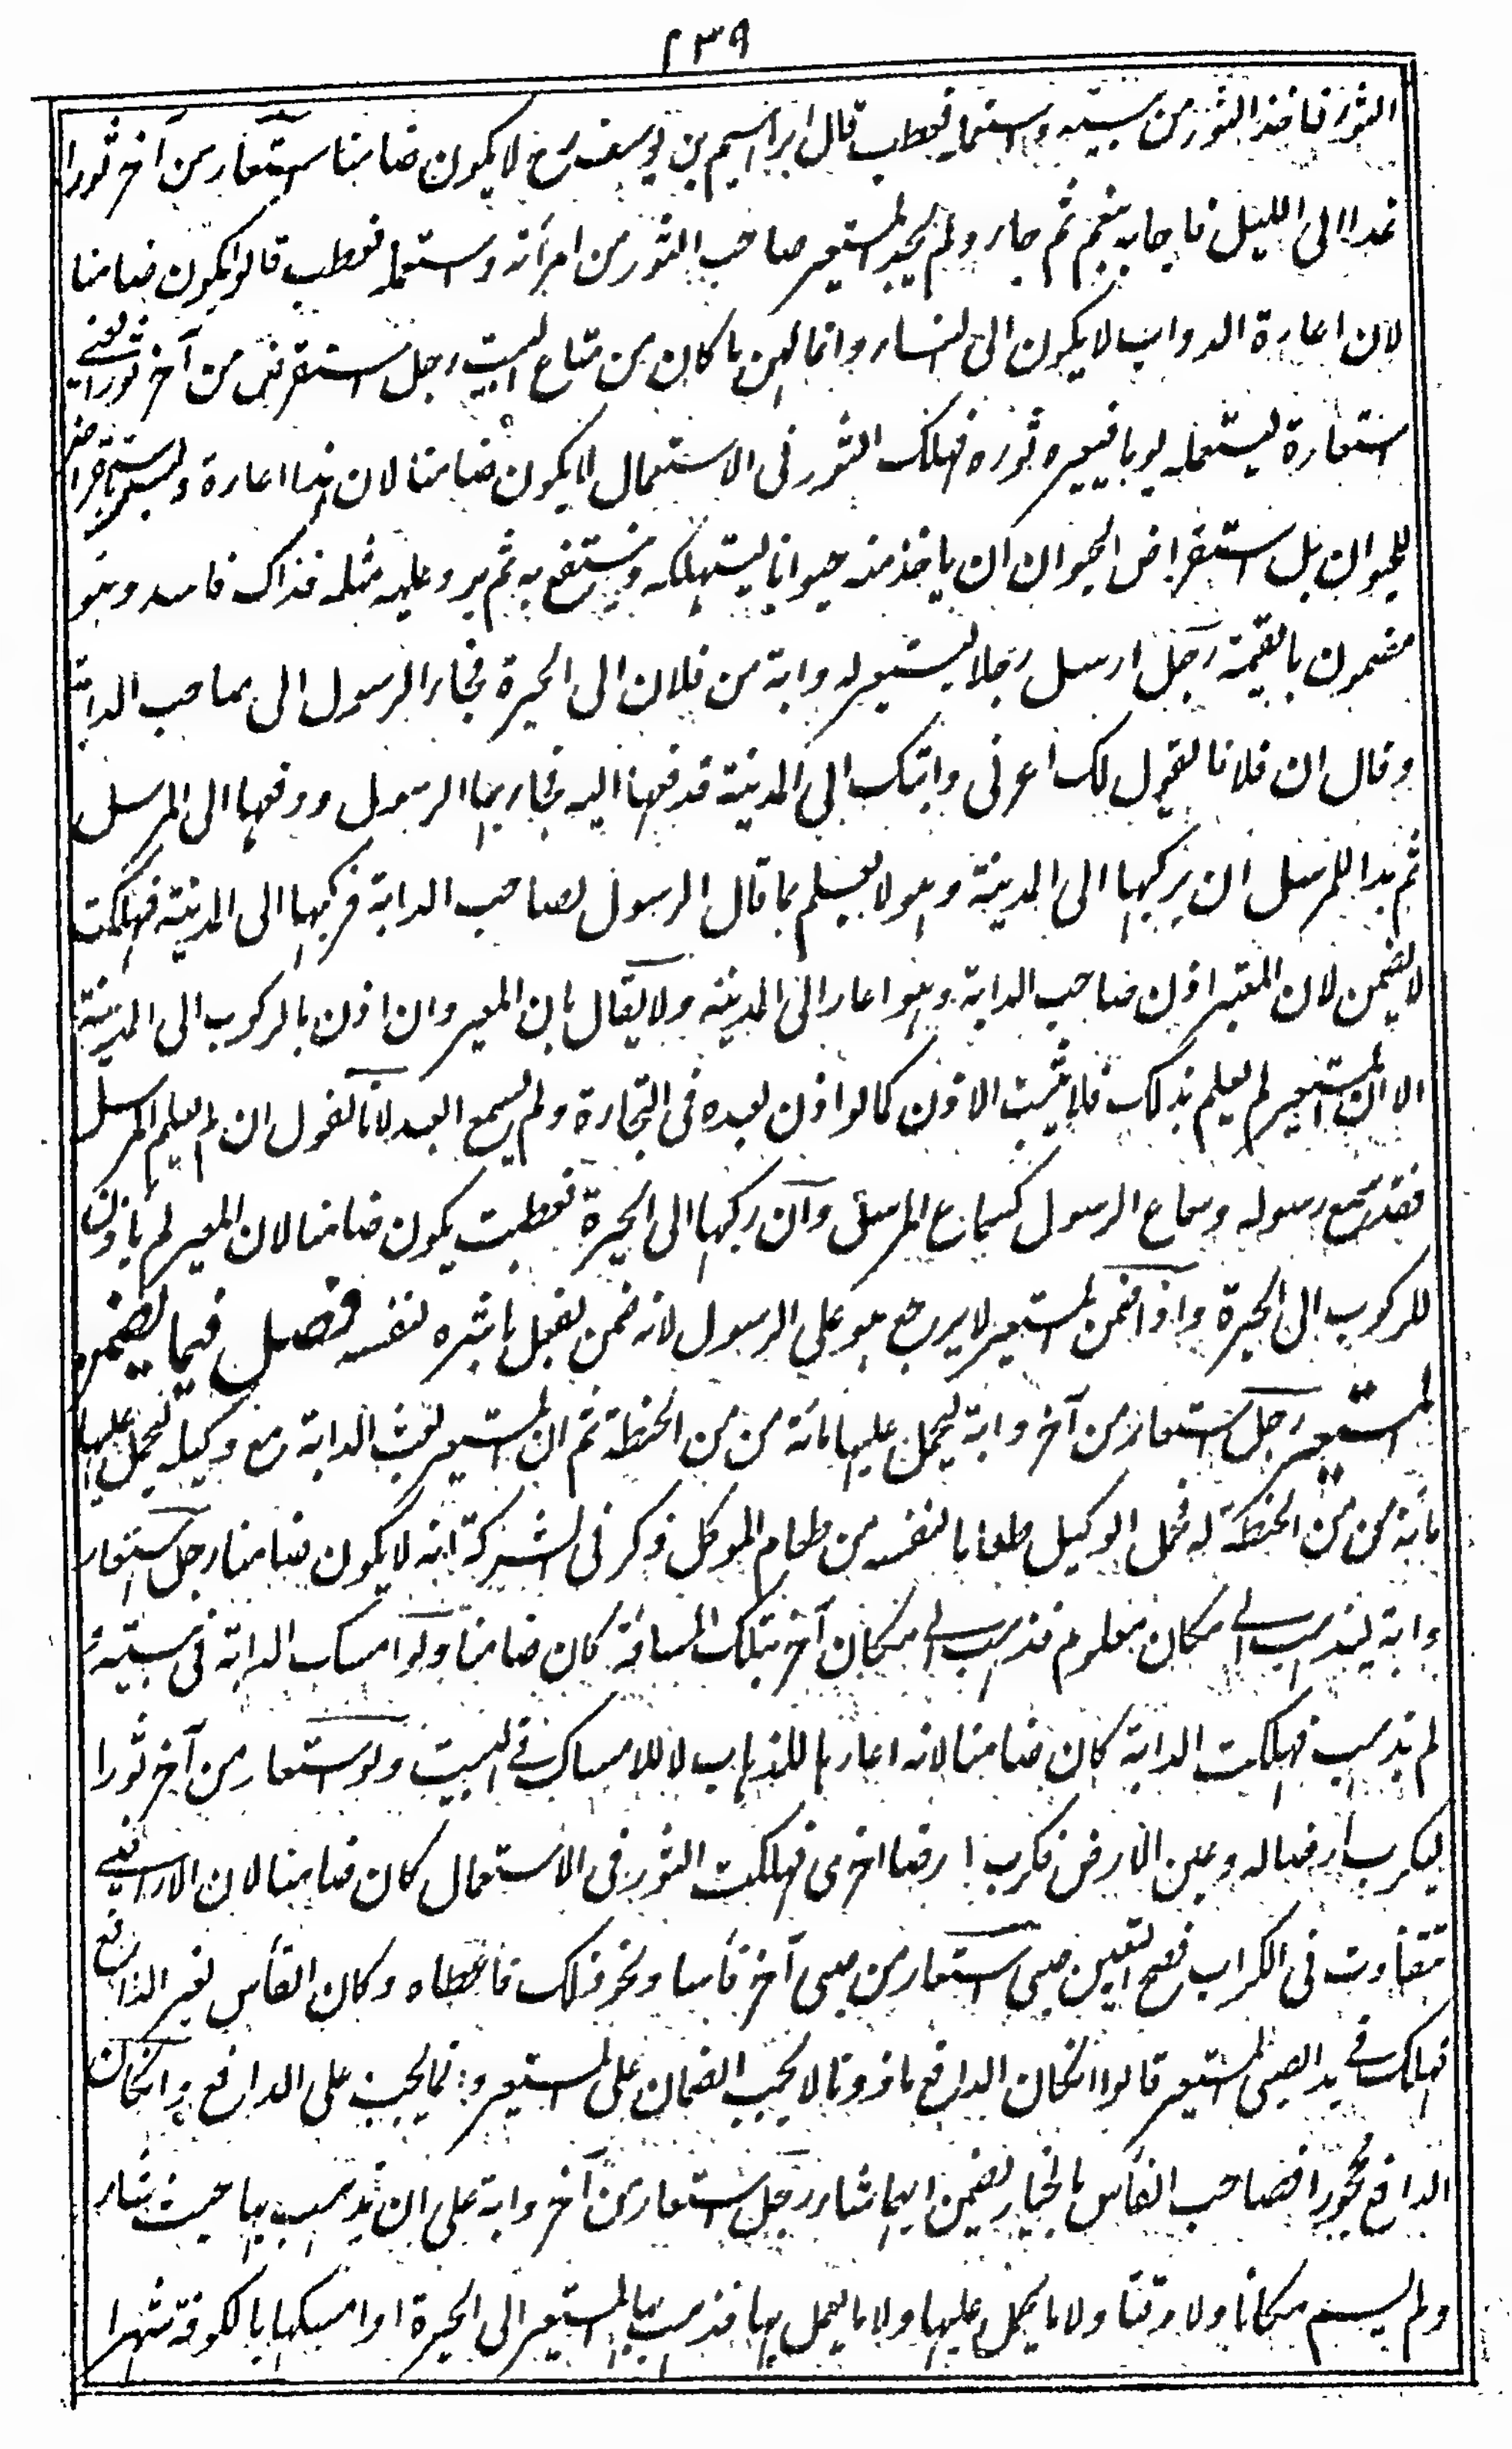 ٢٣٩
الثور فاخذ الثور من بيته واستعمله فعطب قال ابراهيم بن يوسف رح لا يكون ضامنا استعار من آخر ثورا
غدا الى الليل فاجابه بنعم ثم جاء ولم يجد المستعير صاحب الثور من امرأته واستعمله فعطب قالوا يكون ضامنا
لان اعارة الدواب لا يكون الى النساء وانما لهن ما كان من متاع البيت رجل استقرض من آخر ثورا يعني
استعارة ليستعمله يوما فيعيره ثوره فهلك الثور في الاستعمال لا يكون ضامنا لان هذا اعارة وليس باستقراض
للحيوان بل استقراض الحيوان ان ياخذ منه حيوانا ليستهلكه وينتفع به ثم يرد عليه مثله فذاك فاسد وهو
مضمون بالقيمة رجل ارسل رجلا ليستعير له دابة من فلان الى الحيرة فجاء الرسول الى صاحب الدابة
وقال ان فلانا يقول لك اعرني دابتك الى المدينة فدفعها اليه فجاء بها الرسول ودفعها الى المرسل
ثم بدا للمرسل ان يركبها الى المدينة وهو لا يعلم بما قال الرسول لصاحب الدابة فركبها الى المدينة فهلكت
لا يضمن لان المعتبر اذن صاحب الدابة وهو اعار الى المدينة ولا يقال بان المعير وان اذن بالركوب الى المدينة
الا ان المستعير لم يعلم بذلك فلا يثبت الاذن كما لو اذن لعبده في التجارة ولم يسمع العبد لانا نقول ان لم يعلم المرسل
فقد سمع رسوله وسماع الرسول كسماع المرسل وان ركبها الى الحيرة فعطبت يكون ضامنا لان المعير لم ياذن
للركوب الى الحيرة واذا ضمن المستعير لا يرجع هو على الرسول لانه ضمن بفعل باشره لنفسه فصل فيما يضمن
المستعير رجل استعار من آخر دابة ليحمل عليها مائة من من الحنطة ثم ان المستعير بعث الدابة مع وكيله ليحمل عليها
مائة من من الحنطة له فحمل الوكيل طعاما لنفسه من طعام الموكل ذكر في الشركة انه لا يكون ضامنا رجل استعار
دابة ليذهب الى مكان معلوم فذهب الى مكان آخر بتلك المسافة كان ضامنا ولو امسك الدابة في بيته و
لم يذهب فهلكت الدابة كان ضامنا لانه اعارها للذهاب لا للامساك في البيت ولو استعار من آخر ثورا
ليكرب ارضا له وعين الارض فكرب ارضا اخرى فهلكت الثور في الاستعمال كان ضامنا لان الاراضي
تتفاوت في الكراب فصح التعيين صبي استعار من صبي آخر فأسا ونحو ذلك فاعطاه وكان الفأس لغير الدافع
فهلك في يد الصبي المستعير قالوا انكان الدافع ماذونا لا يجب الضمان على المستعير وانما يجب على الدافع وانكان
الدافع محجورا فصاحب الفأس بالخيار يضمن ايهما شاء رجل استعار من آخر دابة على ان يذهب بها حيث شاء
ولم يسم مكانا ولا وقتا ولا ما يحمل عليها ولا ما يعمل بها فذهب بها المستعير الى الحيرة او امسكها بالكوفة شهرا